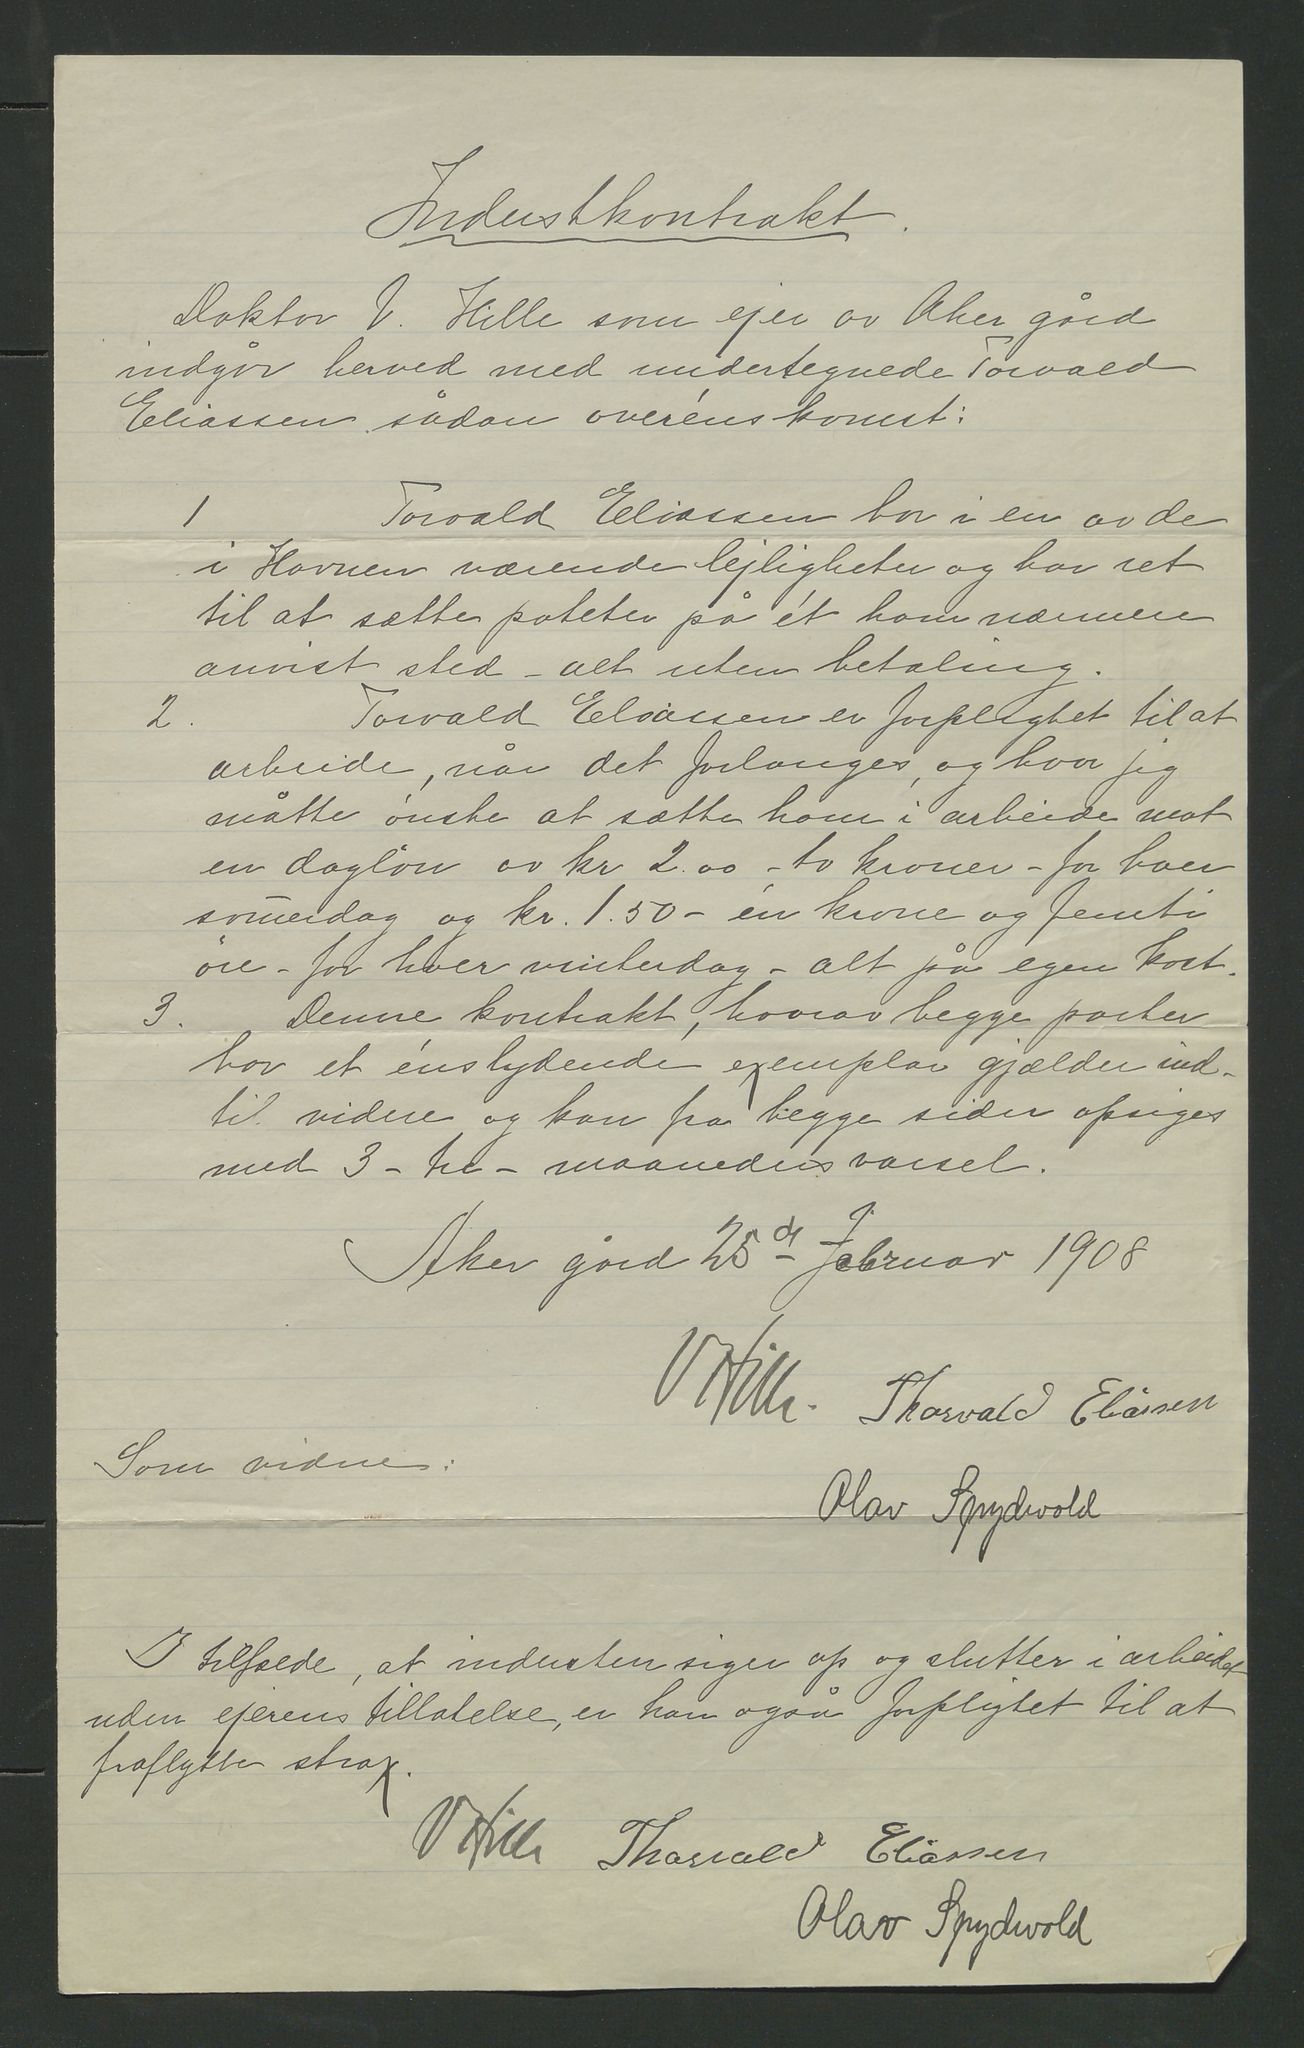 Inderstkontrakt.
Doktor V. Hille som ejer av Aker gård
indgår herved med undertegnede Torvald
Eliassen sådan overénskomst:
1 Torvald Eliassen bor i en av de
i Havnen værende lejligheter og har ret
til at sætte poteter på ét ham nærmere
anvist sted - alt uten betaling.
2. Torvald Eliassen er forpligtet til at
arbeide, når det forlanges, og hvor jeg
måtte ønske at sætte ham i arbeide mot
en dagløn av kr 2.00 - to kroner - for hver
som̅erdag og kr. 1.50 - én krone og femti
øre - for hver vinterdag - alt på egen kost.
3. Denne kontrakt, hvorav begge parter
har et énslydende exemplar gjælder ind-
til videre og kan fra begge sider opsiges
med 3 - tre - maaneders varsel.
Aker gård 25de Februar 1908
VHille. Thorvald Eliassen
Som vidne:
Olav Spydevold
I tilfælde, at indersten siger op og slutter i arbeidet
uden ejerens tillatelse, er han også forpligtet til at
fraflytte strax.
VHille Thorvald Eliassen
Olav Spydevold